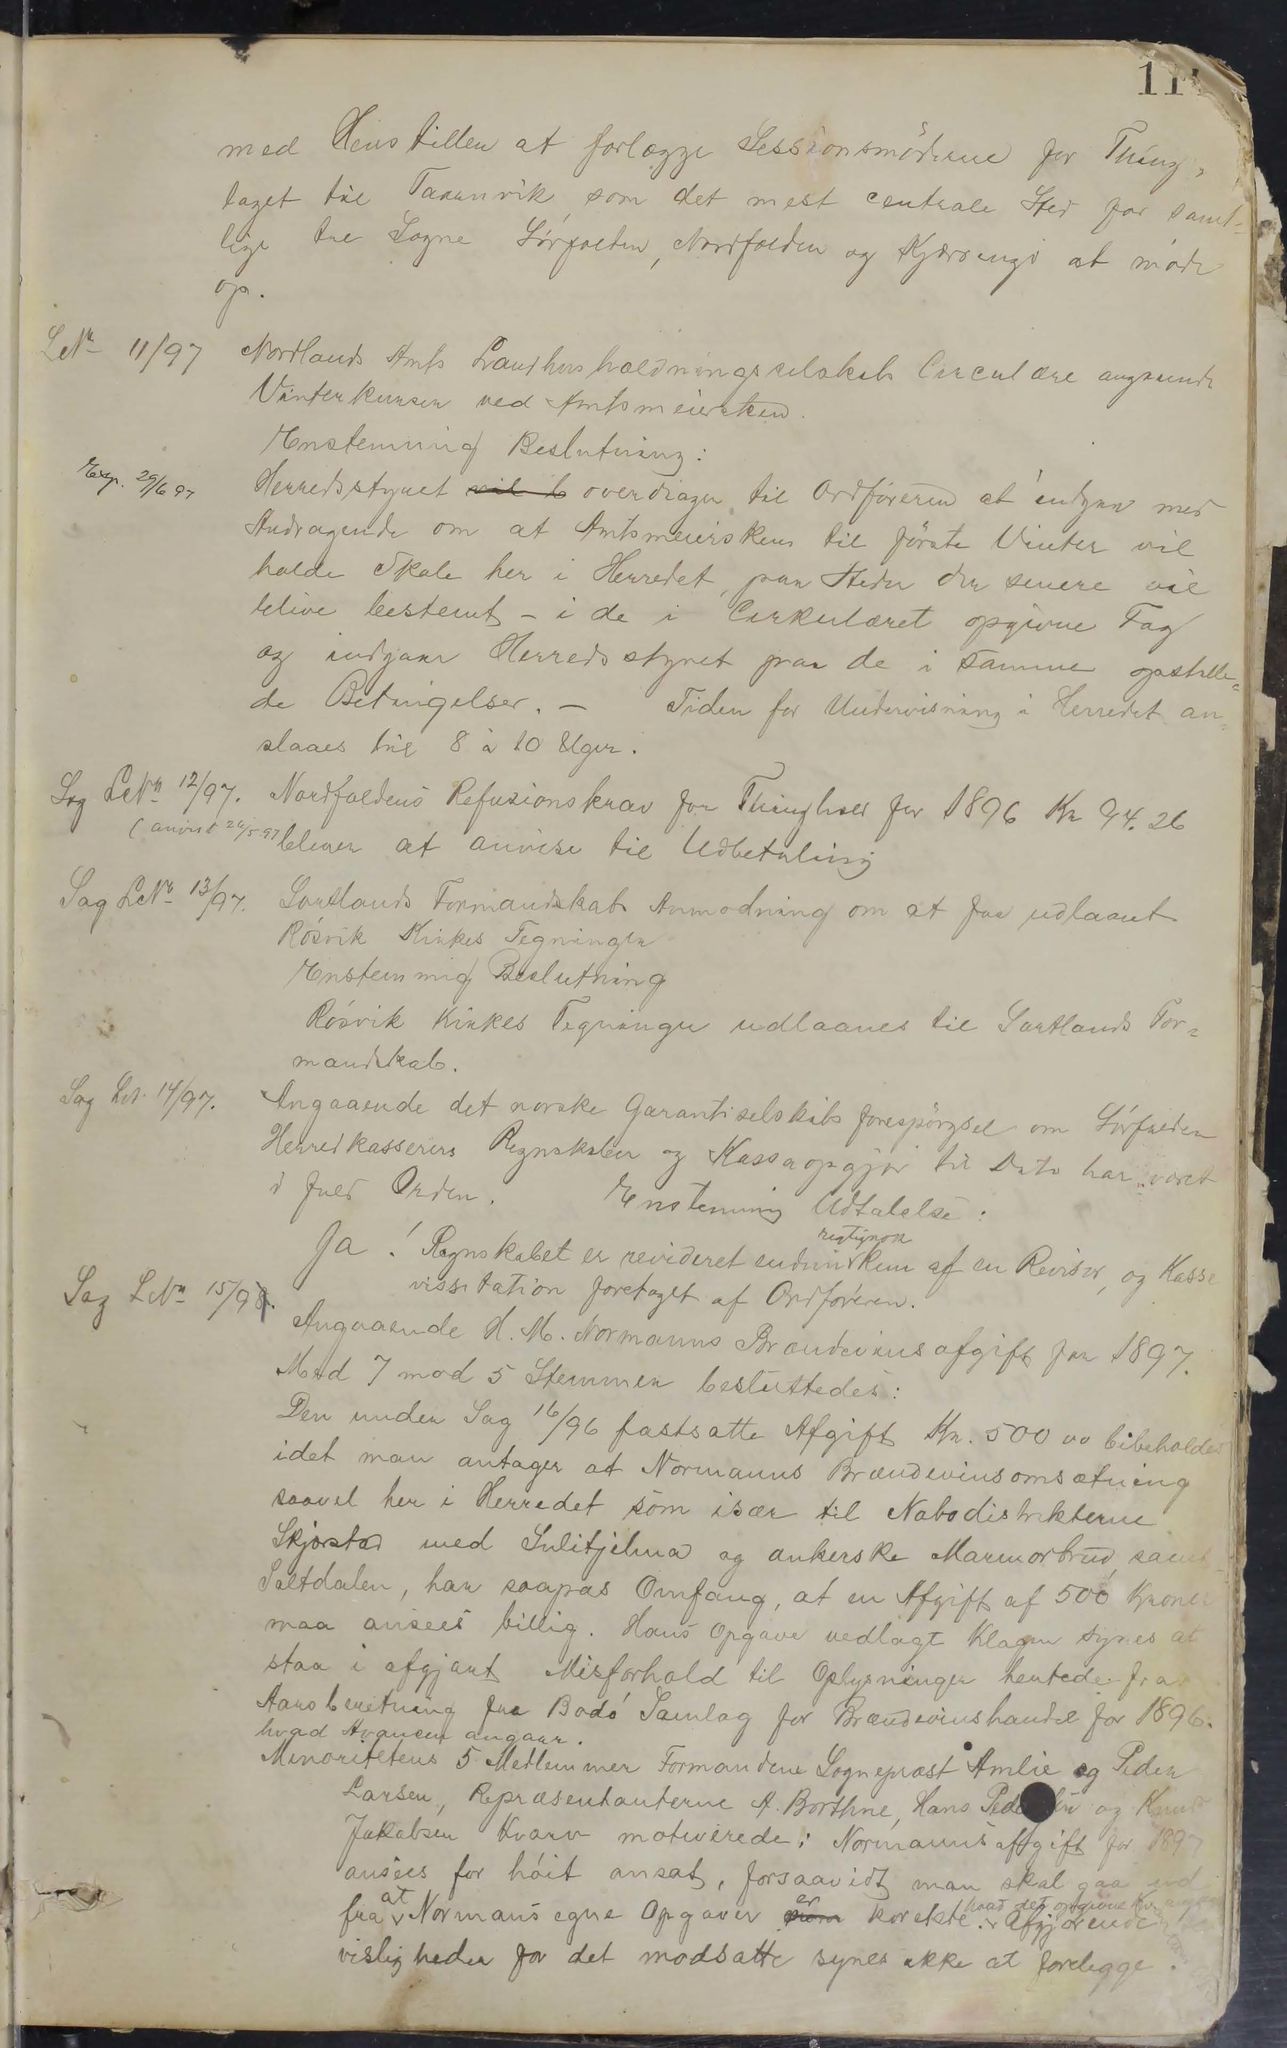 11
med Henstillen at forlægge Sessionsmöderne for Thing-
laget til Taarnvik som det mest centrale Sted for samt-
lige tre Sogne Sörfolden, Nordfolden og Kjærringö at möde
op.
LNr 11/97 Nordlands Amts Landhusholdningsselskabs Circulære angaaende
Vinterkurser ved Amtsmeiersken.
Enstemmig Beslutning:
Exp. 29/6 97 Herredsstyret overdrager til Ordföreren at indgaa med
Andragende om at Amtsmeiersken til förste Vinter vil
holde Skole her i Herredet, paa Steder der senere vil
blive bestemt - i de i Cirkulæret opgivne Fag
og indgaar Herredsstyret paa de i samme opstille-
de Betingelser. - Tiden for Undervisning i Herredet an-
slaaes til 8 à 10 Uger.
Sag LNr 12/97. Nordfoldens Refusionskrav for Thinghold for 1896 Kr 94.26
(anvist 26/5 97 blever at anvise til Udbetaling
Sag LNr 13/97. Sortlands Formandskabs Anmodning om at faa udlaant
Rösvik Kirkes Tegninger
Enstemmig Beslutning
Rösvik Kirkes Tegninger udlaanes til Sortlands For-
mandskab.
Sag LNr 14/97. Angaaende det norske Garantiselskabs forespörgsel om Sörfolden
Herredkasserers Regnskaber og Kasseopgjör til Dato har været
i fuld Orden. Enstemmig Udtalelse:
Ja! Regnskabet er revideret af en Revisor, og Kasse
vissitation foretaget af Ordföreren.
Sag LNr 15/97. Angaaende H. M. Normanns Brændevinsafgift for 1897.
Med 7 mod 5 Stemmer besluttedes:
Den under Sag 16/96 fastsatte Afgift Kr. 500 00 bibeholdes
idet man antager at Normanns Brændevinsomsætning
saavel her i Herredet som især til Nabodistrikterne
Skjerstad med Sulitjelma og ankerske Marmorbrud samt
Saltdalen, har saapas Omfang, at en Afgift af 500 Kroner
maa ansees billig. Hans Opgave vedlagt Klagen synes at
staa i afgjort Misforhold til Oplysninger hentede fra
Aarsberetning fra Bodö Samlag for Brændevinshandel for 1896.
hvad Avancen angaar.
Minoritetens 5 Medlemmer Formandene Sogneprest Amlie og Peder
Larsen, Repræsentanterne A. Borthne, Hans Pedersen og Knud
Jakobsen Kvarv motiverede: Normanns afgift for 1897
ansees for höit ansat, forsaavidt man skal gaa ud
fra at Normans egne Opgaver er korekte. hvad det opgivne Kv. Afgjörende
visligheder for det modsatte synes ikke at foreligge.